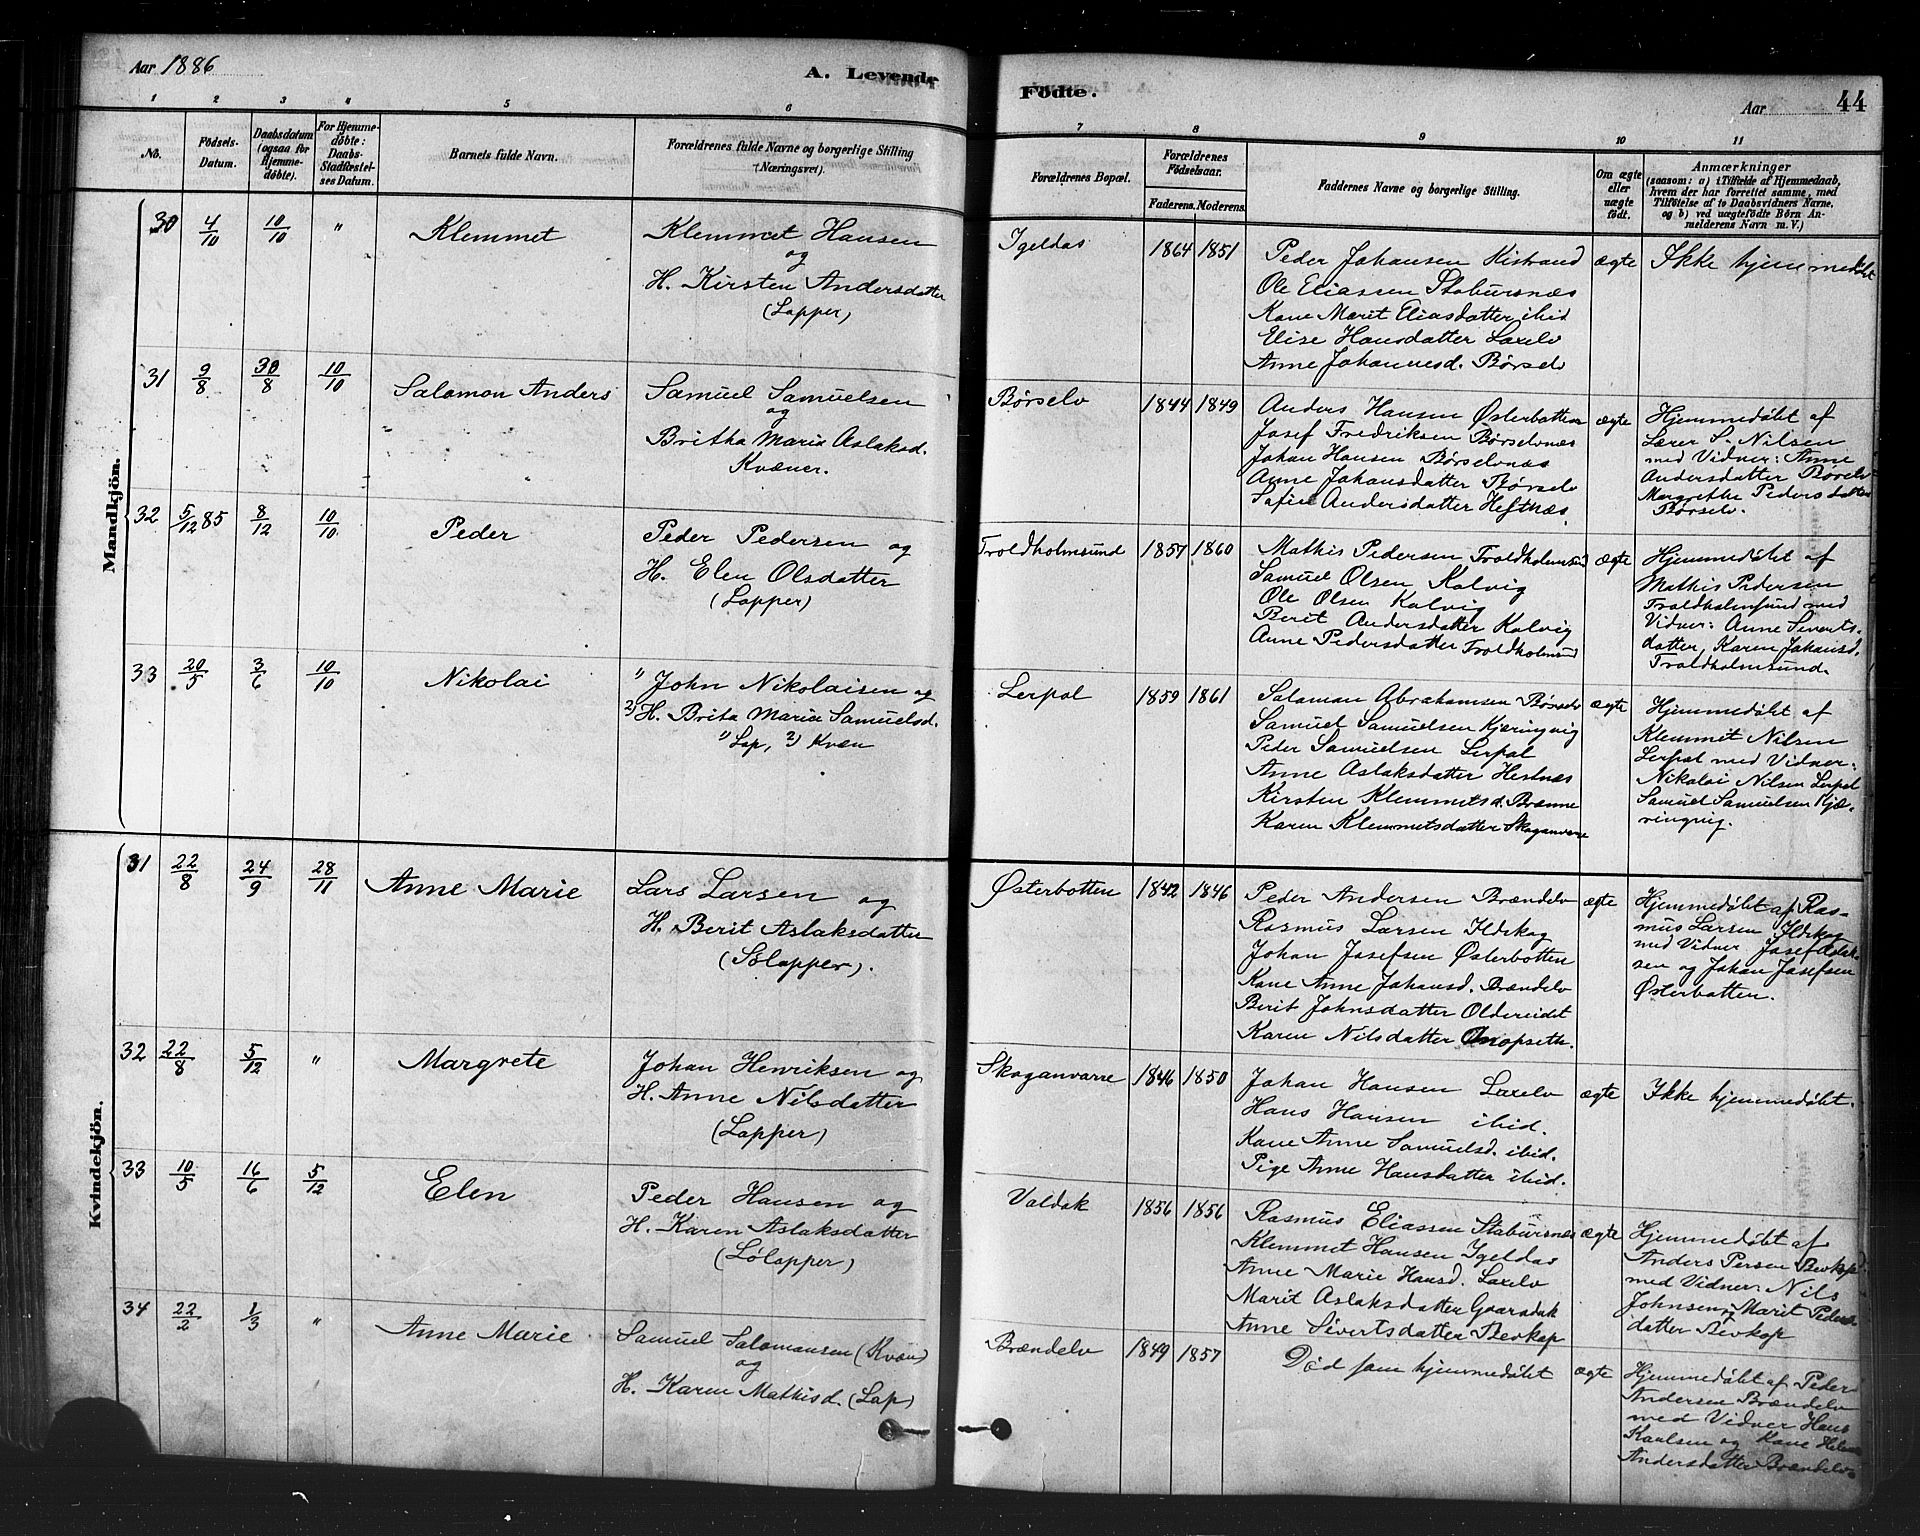 Aar 1886
A. Levende
Födte.
Aar
44
1 2 3 4 5 6 7 8 9 10 11
No.
Födsels-
Datum.
Daabsdatum
(ogsaa for
Hjemme-
döbte).
For Hjemme-
döbte:
Daabs-
Stadfæstel-
ses Datum.
Barnets fulde Navn.
Forældrenes fulde Navne og borgerlige Stilling
(Næringsvei).
Forældrenes Bopæl.
Forældrenes
Födselsaar.
Faderens. Moderens.
Faddernes Navne og borgerlige Stilling.
Om ægte
eller
uægte
födt.
Anmærkninger
(saasom: a) i Tilfælde af Hjemmedaab,
hvem der har forrettet samme, med
Tilföielse af to Daabsvidners Navne,
og b) ved uægtefödte Börn An-
melderens Navn m. V.)
Mandkjön.
30 4/10 10/10 "
Klemmet
Klemmet Hansen
og
H. Kirsten Andersdatter
(Lapper)
Igeldas
1864 1851
Peder Johansen Kistrand
Ole Eliassen Stabursnæs
Kone Marit Eliasdatter ibid
Elise Hansdatter Laxelv
Anne Johannesd. Børselv
ægte
Ikke hjemmedøbt
31 9/8 30/8 10/10
Salomon Anders
Samuel Samuelsen
og
Britha Maria Aslaksd.
Kvæner.
Børselv
1844 1849
Anders Hansen Østerbotten
Josef Fredriksen Børselvnæs
Johan Hansen Børselvnæs
Anne Johansdatter Børselv
Sofie Andersdatter Hestnæs
ægte
Hjemmedøbt af
Lærer S. Nilsen
med Vidner: Anne
Andersdatter Børselv
Margrethe Pedersdatter
Børselv.
32 5/12 85 8/12 10/10
Peder
Peder Pedersen og
H. Elen Olsdatter
(Lapper)
Troldholmsund
1857 1860
Mathis Pedersen Troldholmsund
Samuel Olsen Kolvig
Ole Olsen Kolvig
Berit Andersdatter Kolvig
Anne Pedersdatter Troldholmsund
ægte
Hjemmedøbt af
Mathis Pedersen
Troldholmsund med
Vidner: Anne Siverts-
datter, Karen Johansd.
Troldholmsund.
33 20/5 3/6 10/10
Nikolai
1) John Nikolaisen og
2) H. Brita Maria Samuelsd.
1) Lap, 2) Kvæn
Lerpol
1859 1861
Salomon Abrahamsen Børselv
Samuel Samuelsen Kjæringvig
Peder Samuelsen Lerpol
Anne Aslaksdatter Hestnæs
Kirsten Klemmetsd. Brænne
Karen Klemmetsdatter Skoganvarre
ægte
Hjemmedøbt af
Klemmet Nilsen
Lerpol med Vidner:
Nikolai Nilsen Lerpol
Samuel Samuelsen Kjæ-
ringvig.
Kvindekjön.
31 22/8 24/9 28/11
Anne Marie
Lars Larsen og
H. Berit Aslaksdatter
(Sølapper).
Østerbotten
1842 1846
Peder Andersen Brændelv
Rasmus Larsen Ildskog
Johan Josefsen Østerbotten
Kone Anne Johansd. Brændelv
Berit Johnsdatter Oldereidet
Karen Nilsdatter
ægte
Hjemmedøbt af Ras-
mus Larsen Ildskog
med Vidner Josef Aslak-
sen og Johan Josefsen
Østerbotten.
32 22/8 5/12 "
Margrete
Johan Henriksen og
H. Anne Nilsdatter
(Lapper)
Skoganvarre
1846 1850
Johan Hansen Laxelv
Hans Hansen ibid.
Kone Anne Samuelsd. ibid.
Pige Anne Hansdatter ibid.
ægte
Ikke hjemmedøbt.
33 10/5 16/6 5/12
Elen
Peder Hansen og
H. Karen Aslaksdatter
(Sølapper)
Valdak
1856 1856
Rasmus Eliassen Stabursnæs
Klemmet Hansen Igeldas
Anne Marie Hansd. Laxelv
Marit Aslaksdatter Goaradak
Anne Sivertsdatter Bevkop
ægte
Hjemmedøbt af
Anders Persen Bevkop
med Vidner Nils
Johnsen, Marit Peders-
datter Bevkop
34 22/2 1/3 "
Anne Marie
Samuel Salomonsen (Kvæn)
og
H. Karen Mathisd. (Lap)
Brændelv
1849 1857
Død som hjemmedøbt
ægte
Hjemmedøbt af Peder
Andersen Brændelv
med Vidner Hans
Karlsen og Kone
Andersdatter Brændelv